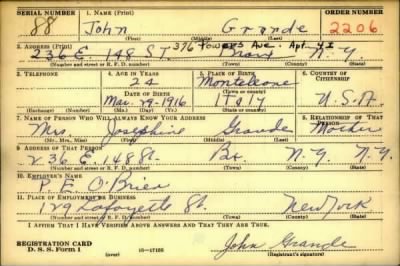 SERIAL NUMBER 1. NAME (Print) ORDER NUMBER
88 John Grande 2206
(First) (Middle) (Last)
2. ADDRESS (Print) 376 Powers Ave. Apt
236 E. 148 ST. Bronx N.Y
(Number and street or R. F. D. number) (Town) (County) (State)
3. TELEPHONE 4. AGE IN YEARS 5. PLACE OF BIRTH 6. COUNTRY OF CITIZENSHIP
24 Monteleone
DATE OF BIRTH (Town or county)
Mar. 29-1916 Italy U.S.A
(Exchange) (Number) (Mo.) (Day) (Yr.) (State or country)
7. NAME OF PERSON WHO WILL ALWAYS KNOW YOUR ADDRESS 8. RELATIONSHIP OF THAT PERSON
Mrs Josephine Grande Mother
(Mr., Mrs., Miss) (First) (Middle) (Last)
9. ADDRESS OF THAT PERSON
236 E. 148 St. Bx. N.Y. N.Y.
(Number and street or R. F. D. number) (Town) (County) (State)
10. EMPLOYER'S NAME
P. E. O'Brien
11. PLACE OF EMPLOYMENT OR BUSINESS
129 Lafayette St. New York
(Number and street or R. F. D. number) (Town) (County) (State)
I AFFIRM THAT I HAVE VERIFIED ABOVE ANSWERS AND THAT THEY ARE TRUE.
REGISTRATION CARD
D. S. S. Form 1 (over) 16—17105 John Grande
(Registrant's signature)